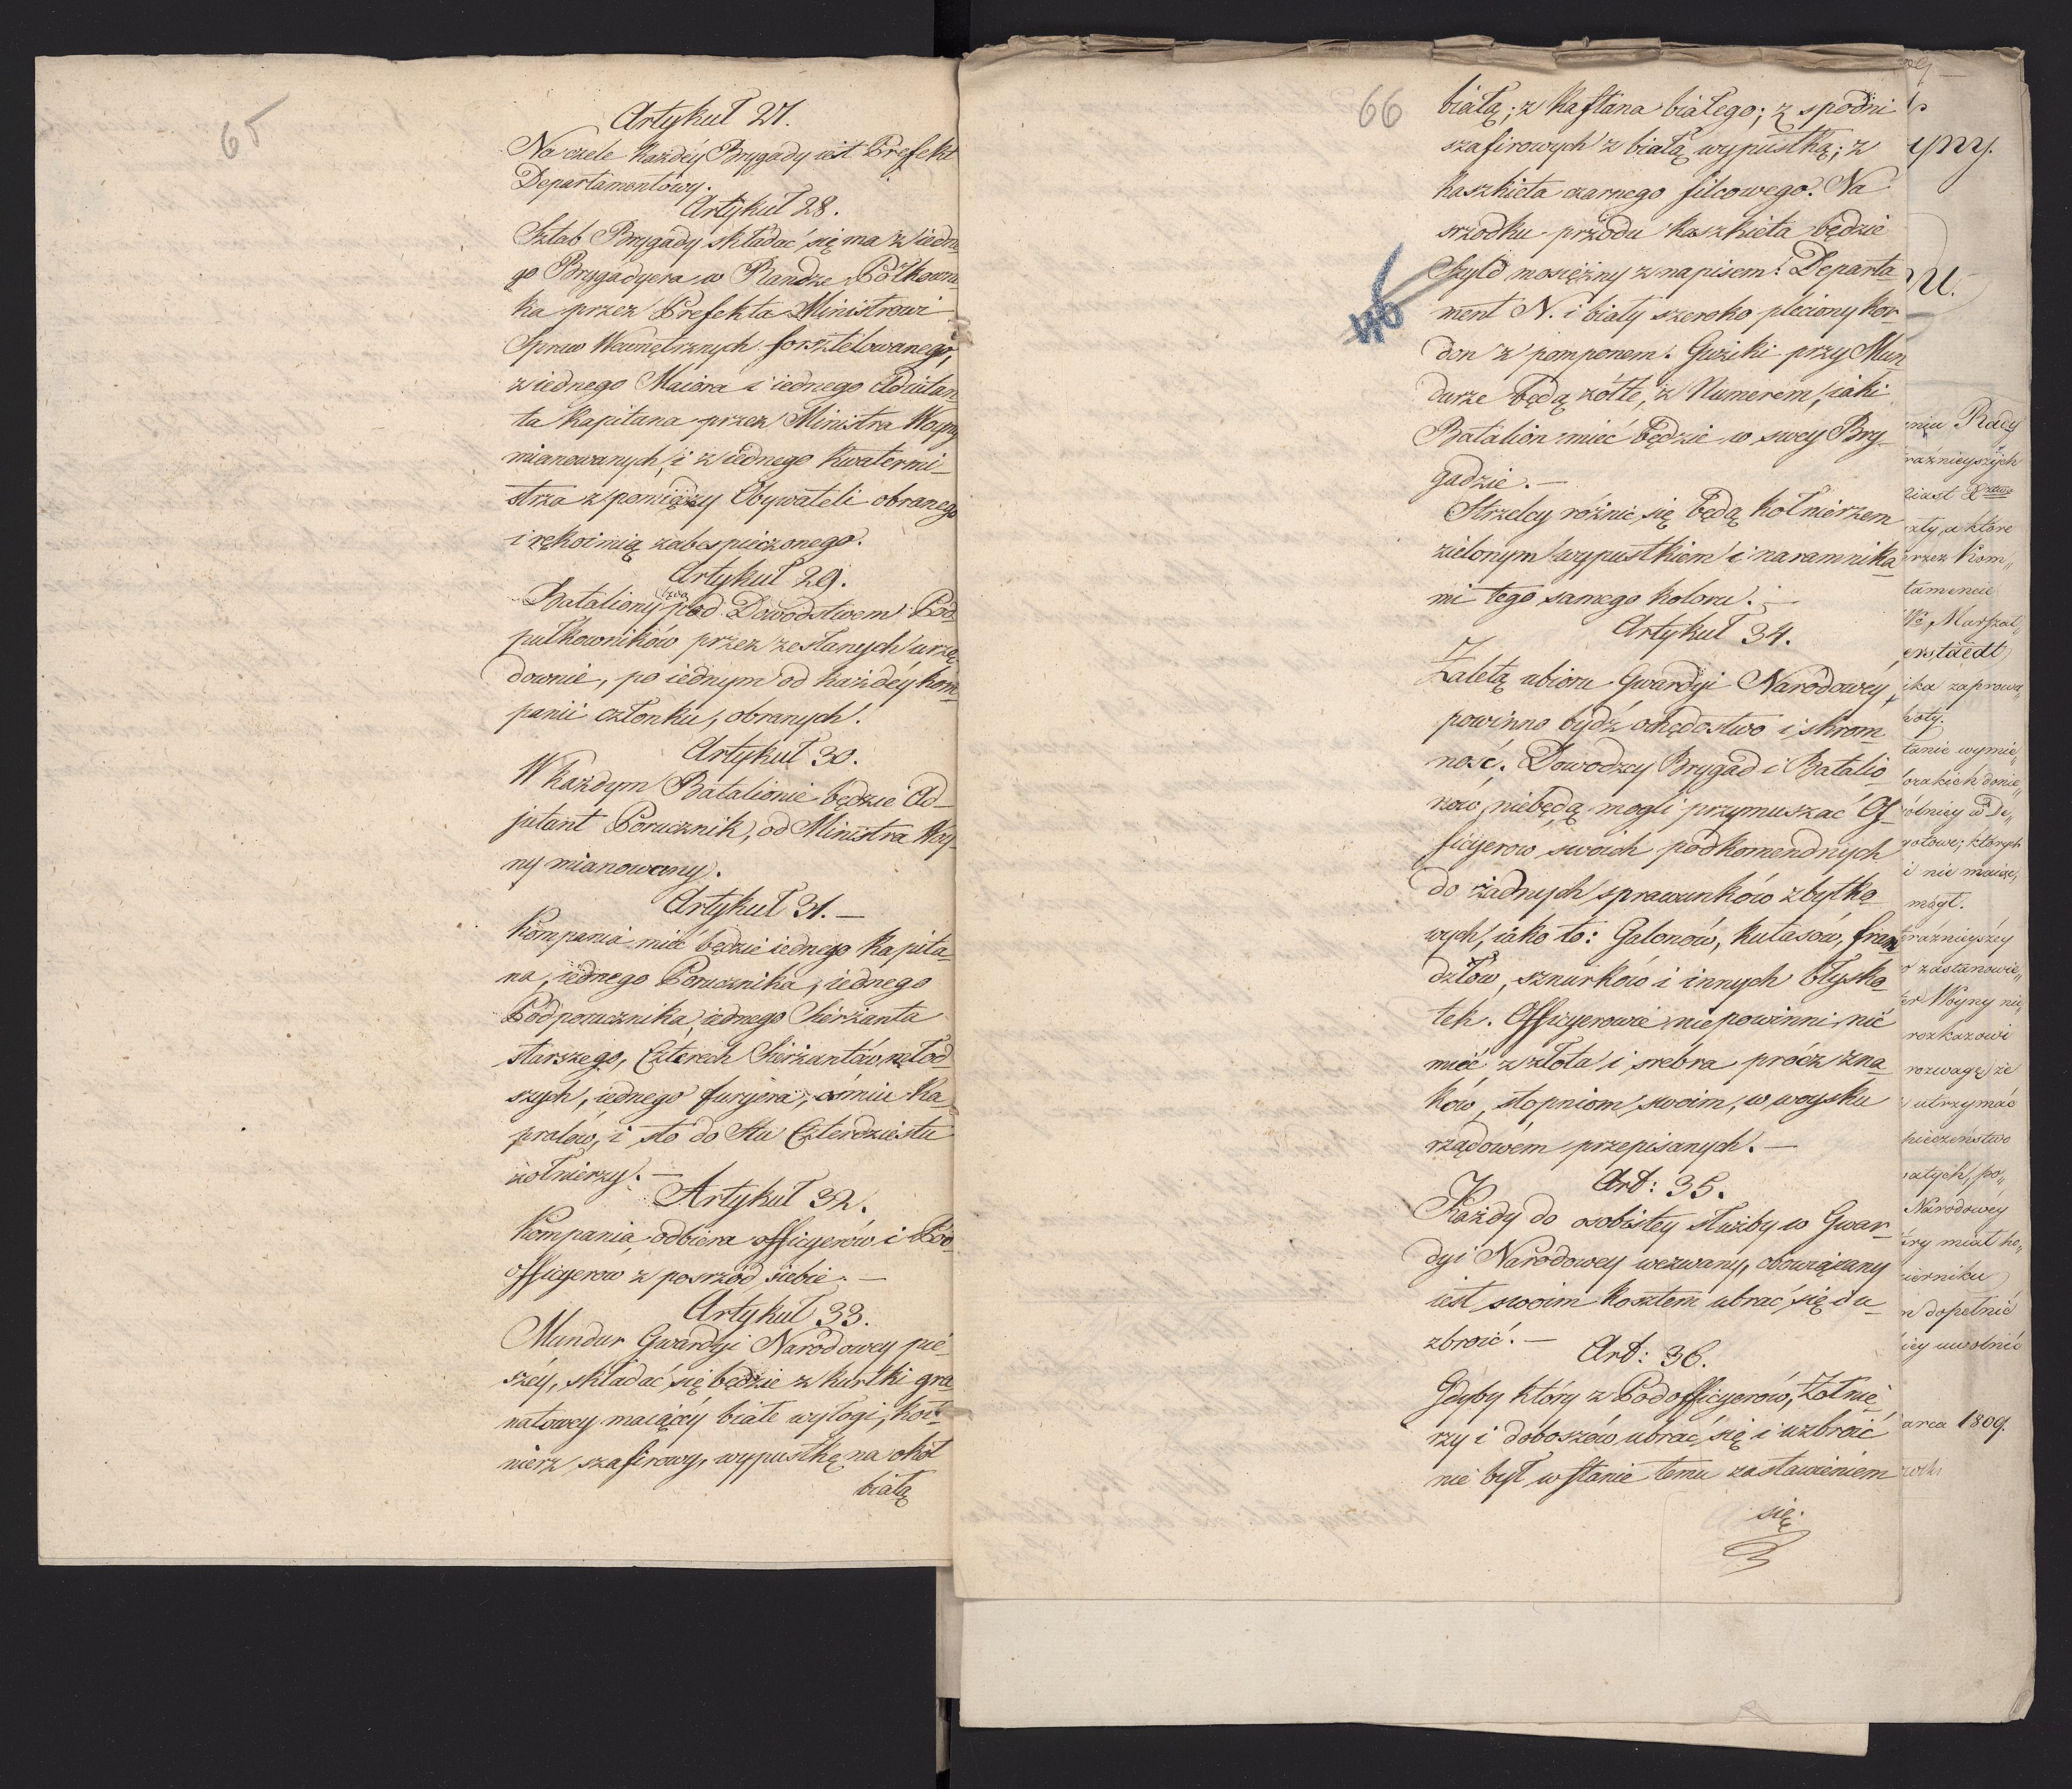 65
Artykuł 27.
Na czele każdéy Brygady iest Prefekt
Departamentówy.
Artykuł 28.
Sztab Brygady składać się ma z iedne
go Brygadyera w Randze Półkowni
ka przez Prefekta Ministrowi
Spraw Wewnętrznych forsztelowanego,
z iednego Maiora i iednego Adiutan
ta Kapitana przez Ministra Woyny
mianowanych, i z iednego Kwatermi_
strza z pomiędzy Obywateli obranego
i rękoimią zabespieczonego.
Artykuł 29.
Bataliony są pod Dowodstwem Pod
pułkowników przez zesłanych urzę_
downie, po iednym od każdéy kom
panii członku, obranych.
Artykuł 30.
W każdym Batalionie będzie Ad_
jutant Porucznik, od Ministra Woy
ny mianowany.
Artykuł 31. —
Kompania mieć będzie iednego Kapita_
na, iednego Porucznika, iednego
Podporucznika, iednego Sierżanta
starszego, Czterech Sierżantów młod
szych, iednego furyera, ośmiu Ka_
pralów, i sto do Stu Czterdziestu
żołnierzy. —
Artykuł 32.
Kompania odbiera officyerów i Pod_
officyerow z posrzód siebie. —
Artykuł 33.
Mundur Gwardyi Narodowey pie_
széy, składać się będzie z kurtki gra
natowey maiącéy białe wyłogi, koł_
nierz szafirowy, wypustkę na okoł
białą
66
białą; z Kaftana białego; z spodni
szafirowych z białą wypustką; z
kaszkieta czarnego filcowego. Na
srzodku przodu kaszkieta będzie
Szyld mosiężny z napisem: Departa_
ment N. i biały szeroko pleciony kor_
don z pomponem. Guziki przy Mun_
durze będą żółte, z Numerem, iaki
Batalion mieć będzie w swey Bry_
gadzie. —
Strzelcy różnić się będą kołnierzem
zielonym wypustkiem i naramnika_
mi tego samego koloru. —
Artykuł 34.
Zaletą ubioru Gwardyi Narodowéy,
powinno bydź ochędostwo i skrom_
ność. Dowodzcy Brygad i Batalio_
nów, niebędą mogli przymuszać Of_
ficyerow swoich podkomendnych
do żadnych sprawunków zbytko_
wych, iako to: Galonów, kutasów, fran_
dzlów, sznurków i innych błysko_
tek. Officyerowie niepowinni nic
mieć z złota i srebra prócz zna_
ków, stopniom swoim, w woysku
rządowém przepisanych. —
Art: 35.
Każdy do osobistey służby w Gwar_
dyi Narodowey wezwany, obowiązany
iest swoim kosztem ubrać się i u_
zbroić. —
Art: 36.
Gdyby który z Podofficyerów, Żołnie_
rzy i doboszów ubrać się i uzbroić
nie był w stanie temu zastawieniem
się
yny.
niu Rady
raźnieyszych
zły, a które
przez Kom„
tamencie
Marszał„
erstaedt
ika zaprowa„
tanie wymie„
gotowe; których
i nie maiąc,
mógł.
teraźnieyszey
zastanowie„
er Woyny nie„
rozkazowi
rozwagę że
utrzymać
pieczeństwo
Narodowéy
ry miał ko„
dopełnić
uwolnić
arca 1809.